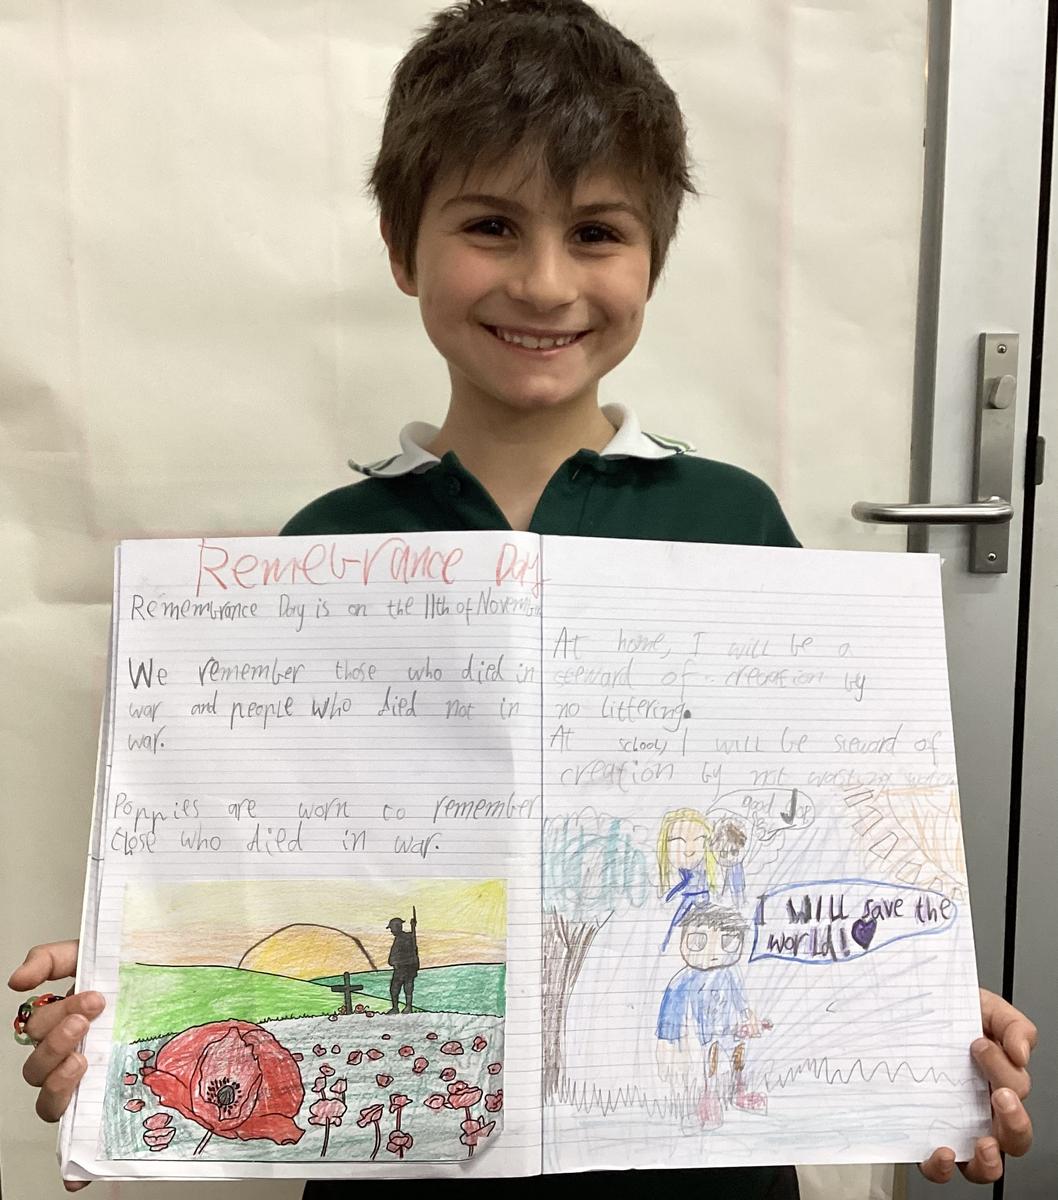 Remembrance Day
Remembrance Day is on the 11th of November
We remember those who died in
war and people who died not in
war.
Poppies are worn to remember
those who died in war.
At home, I will be a
steward of creation by
no littering.
At school, I will be steward of
creation by not wasting water
good Job
I WILL save the
world!